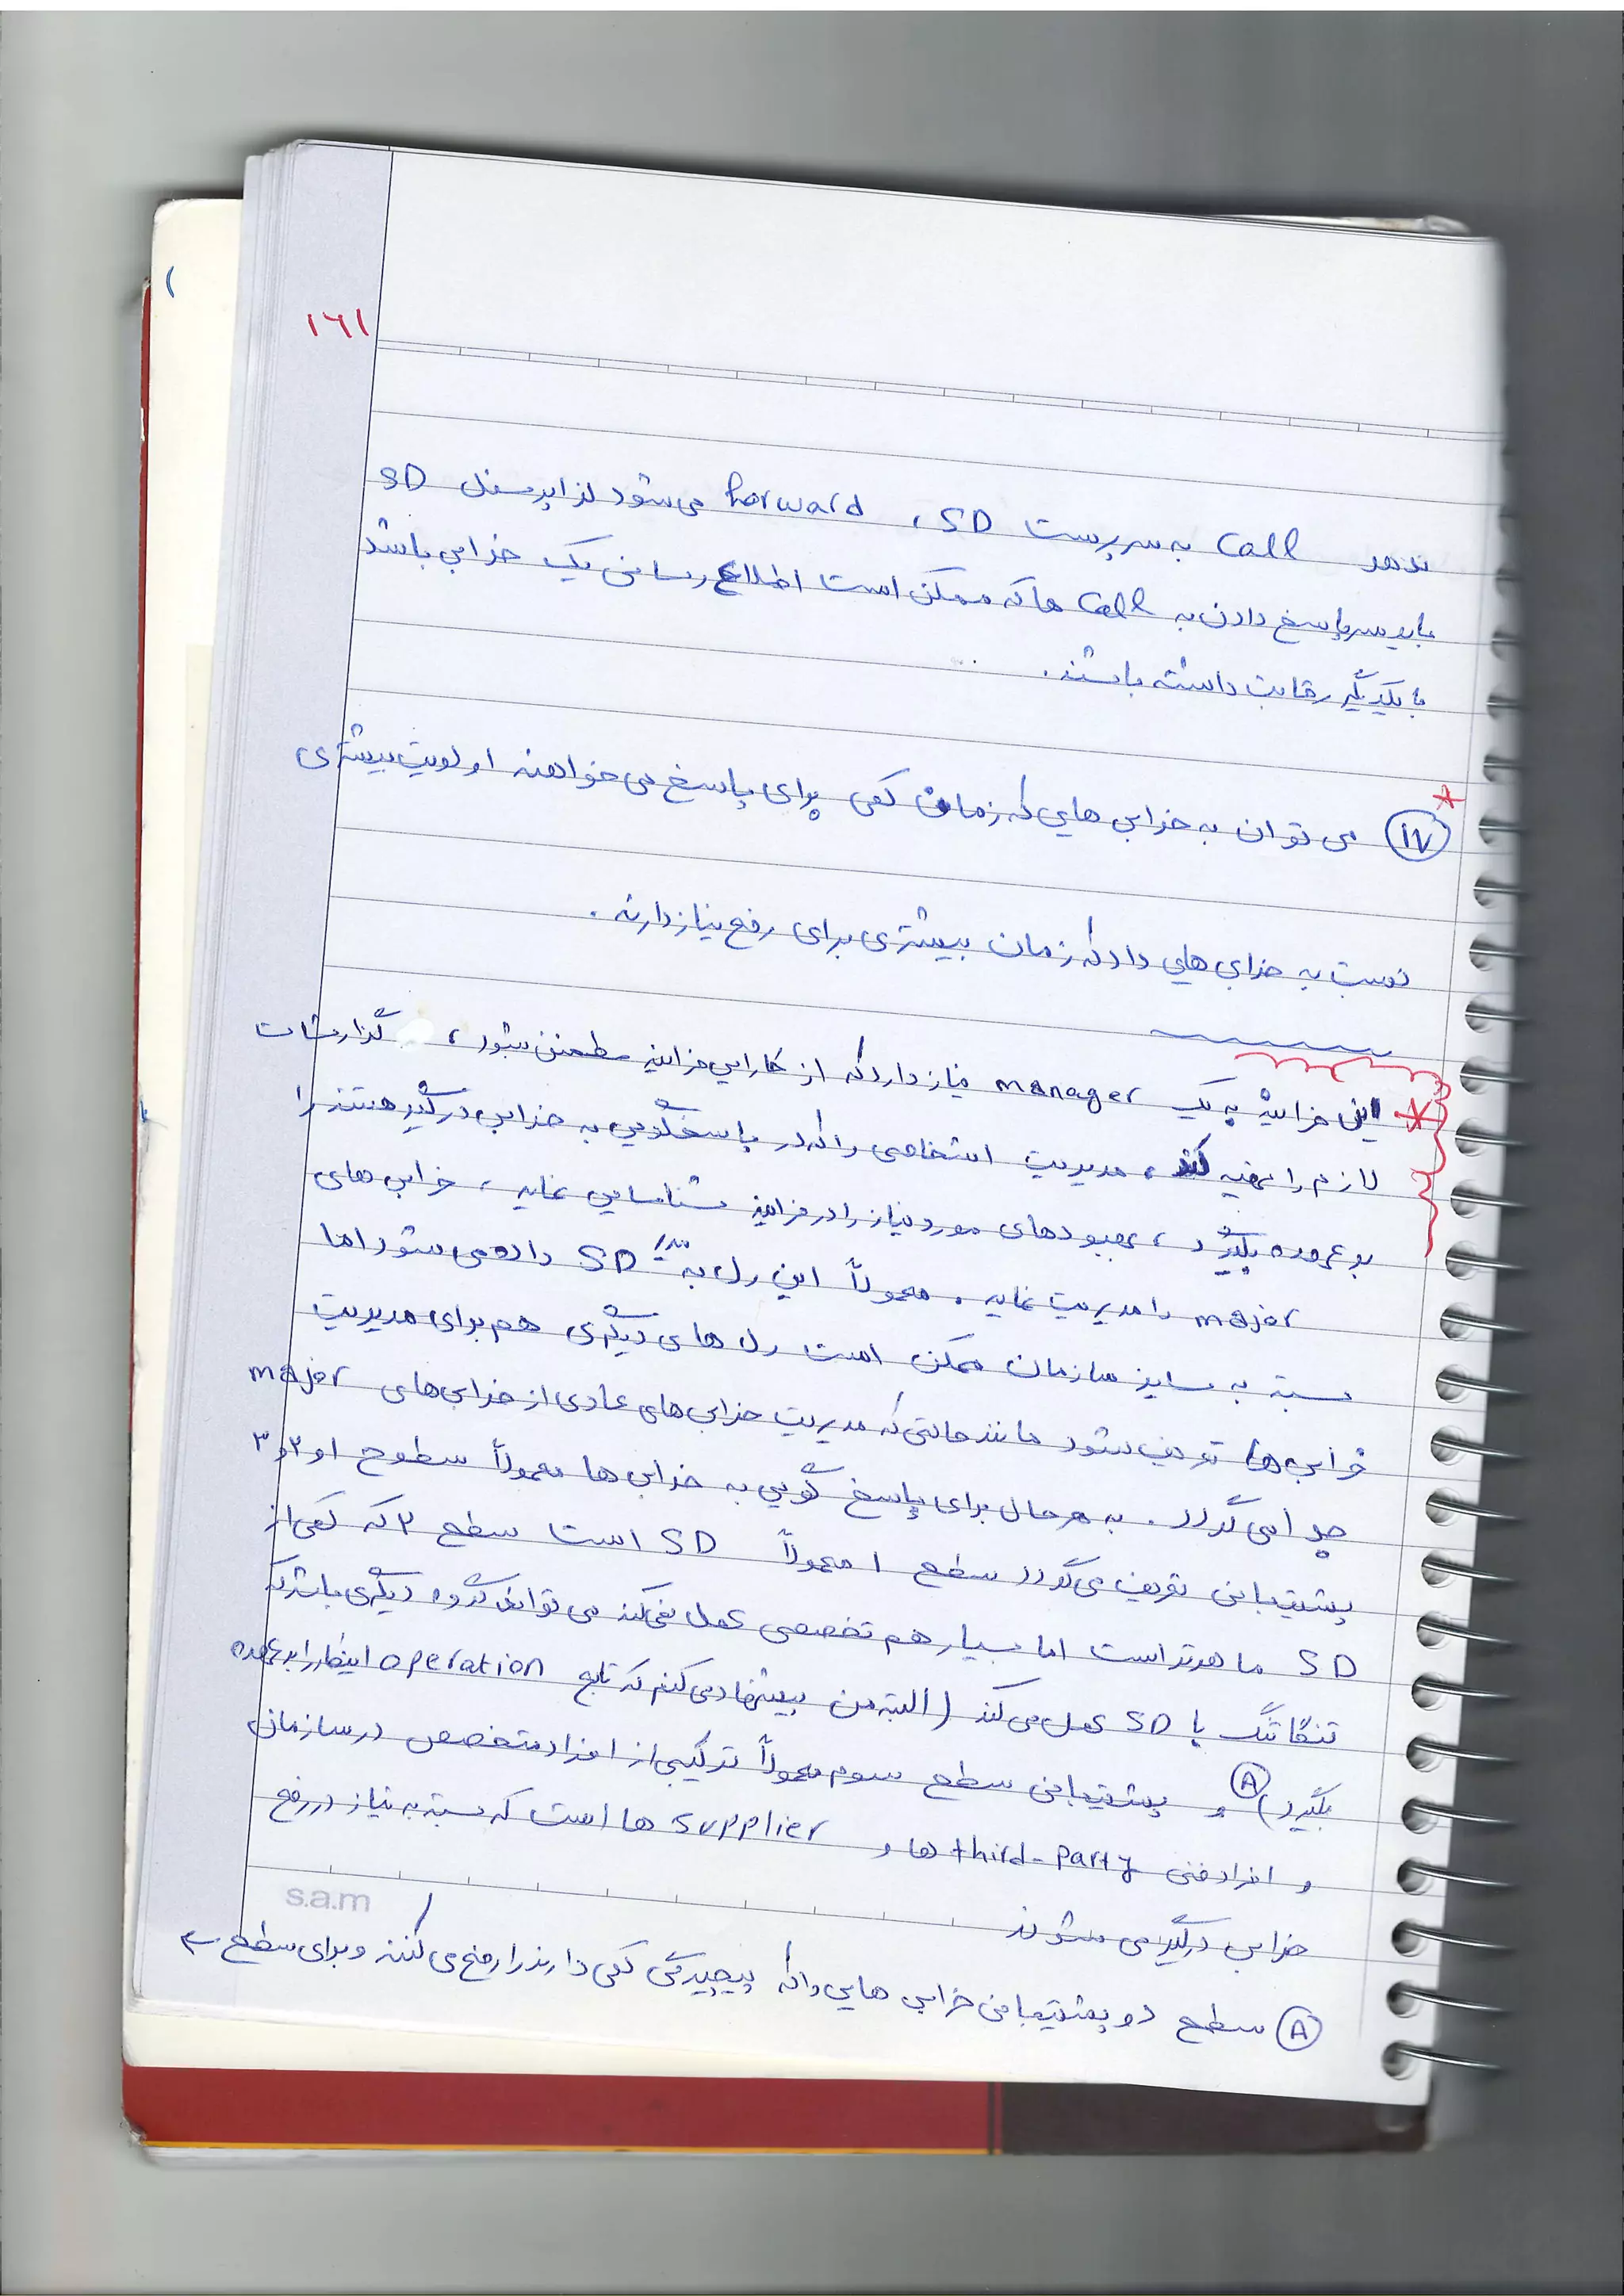 ۱۶۱
ندهد Call به سرپرست SD ، forward می‌شود لذا پرسنل SD
باید سر پاسخ دادن به Call ها که ممکن است اطلاع رسانی یک خرابی باشد
با یکدیگر رقابت داشته باشند .
۱۷ می توان به خرابی هایی که زمان کمی برای پاسخ می خواهند اولویت بیشتری
نسبت به خرابی هایی داد که زمان بیشتری برای رفع نیاز دارند .
* این فرآیند به یک manager نیاز دارد که از کارایی فرآیند مطمئن شود ، گزارشات
لازم را تهیه کند ، مدیریت اشخاصی را که در پاسخگویی به خرابی درگیر هستند را
بر عهده بگیرد ، بهبودهای مورد نیاز را در فرآیند شناسایی نماید ، خرابی های
major را مدیریت نماید . معمولاً این رل به مدیر SD داده می شود اما
بسته به سایز سازمان ممکن است رل های دیگری هم برای مدیریت
خرابی ها تعریف شود مانند حالتی که مدیریت خرابی های عادی از خرابی های major
جدا می گردد . به هر حال برای پاسخ گویی به خرابی ها معمولاً سطوح ۱ و ۲ و ۳
پشتیبانی تعریف می گردد سطح ۱ معمولاً SD است سطح ۲ که کمی از
SD ماهرتر است اما بسیار هم تخصصی عمل نمی کند می تواند گروه دیگری باشد که
تنگاتنگ با SD عمل می کند ( البته من پیشنهاد می کنم که تابع operation اینکار را بر عهده
بگیرد ) A و پشتیبانی سطح سوم معمولاً ترکیبی از افراد متخصص در سازمان
و افراد فنی third-party ها و supplier ها است که بسته به نیاز در رفع
خرابی درگیر می شوند
s.a.m
A سطح دو پشتیبانی خرابی هایی را که پیچیدگی کمی دارند را رفع می کنند و برای سطح ←